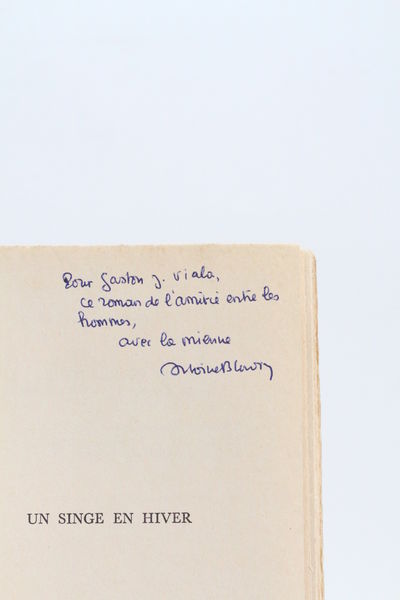 Pour Gaston J. Viala,
ce roman de l'amitié entre les
hommes,
avec la mienne
Antoine Blondin
UN SINGE EN HIVER